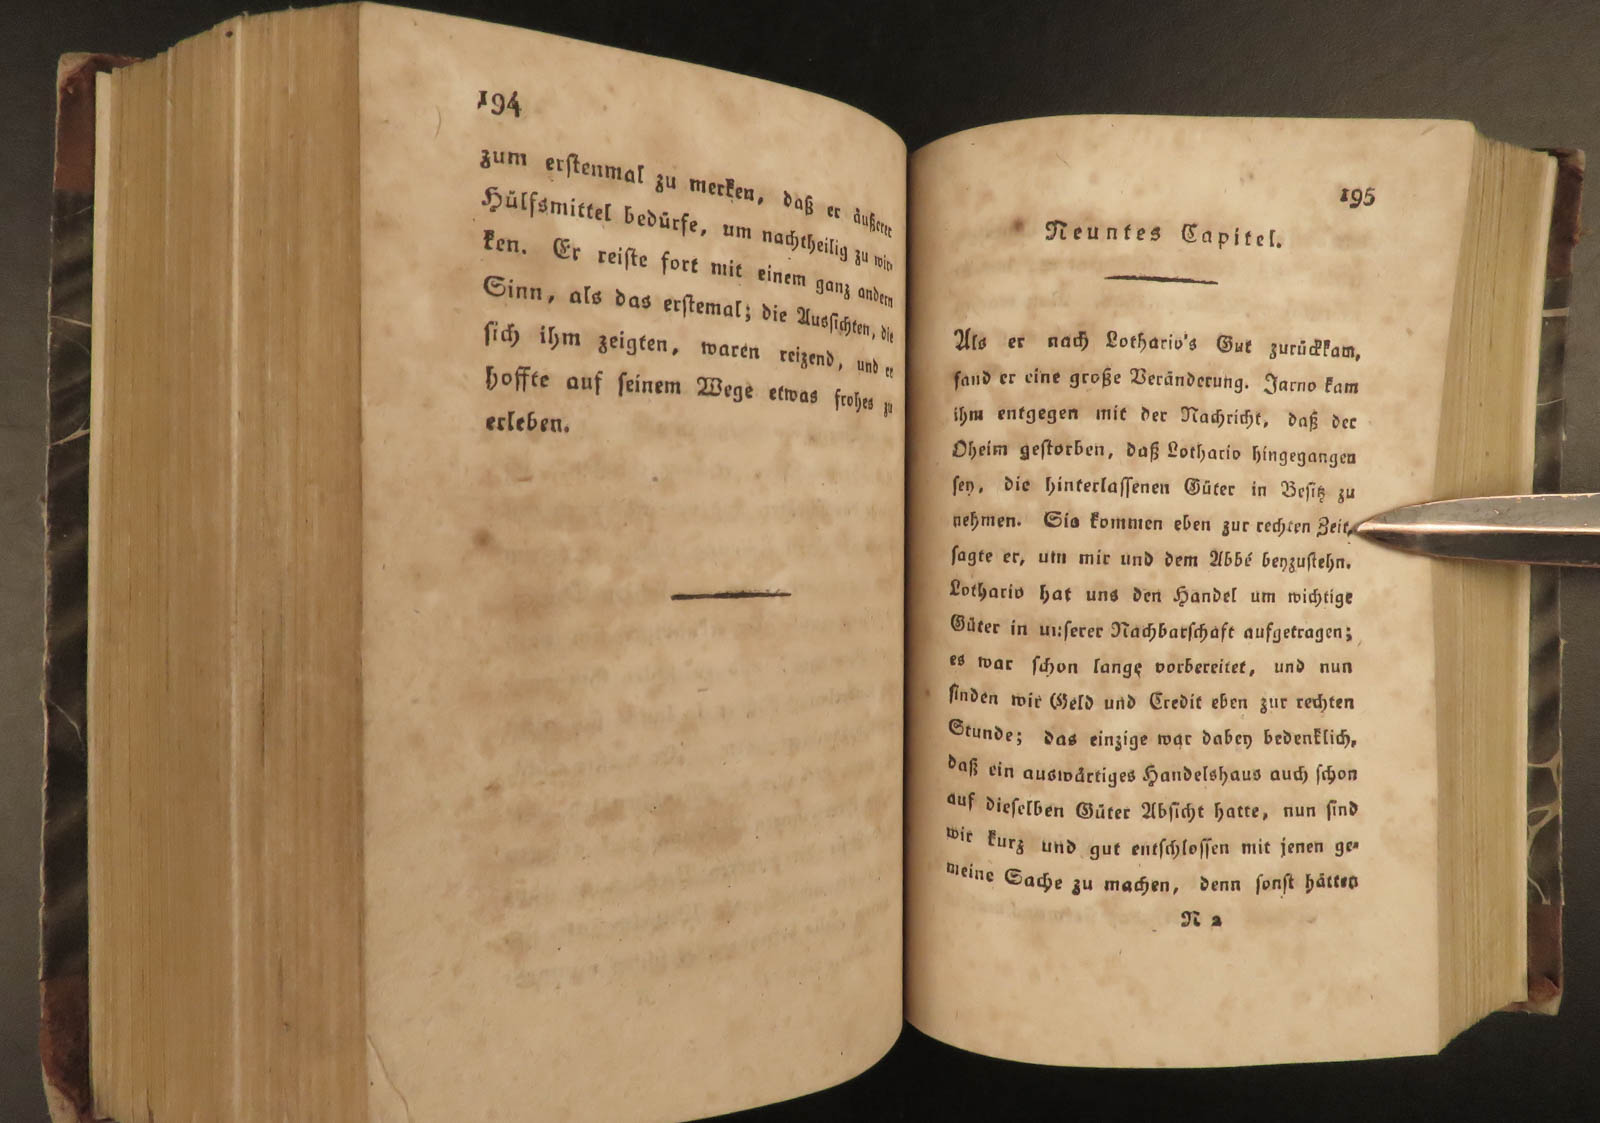 194
zum erstenmal zu merken, daß er äußerer
Hülfsmittel bedürfe, um nachtheilig zu wir-
ken. Er reiste fort mit einem ganz andern
Sinn, als das erstemal; die Aussichten, die
sich ihm zeigten, waren reizend, und er
hoffte auf seinem Wege etwas frohes zu
erleben.
195
Neuntes Capitel.
Als er nach Lothario's Gut zurückkam,
fand er eine große Veränderung. Jarno kam
ihm entgegen mit der Nachricht, daß der
Oheim gestorben, daß Lothario hingegangen
sey, die hinterlassenen Güter in Besitz zu
nehmen. Sie kommen eben zur rechten Zeit,
sagte er, um mir und dem Abbé beyzustehn.
Lothario hat uns den Handel um wichtige
Güter in unserer Nachbarschaft aufgetragen;
es war schon lange vorbereitet, und nun
finden wir Geld und Credit eben zur rechten
Stunde; das einzige war dabey bedenklich,
daß ein auswärtiges Handelshaus auch schon
auf dieselben Güter Absicht hatte, nun sind
wir kurz und gut entschlossen mit jenen ge-
meine Sache zu machen, denn sonst hätten
N 2